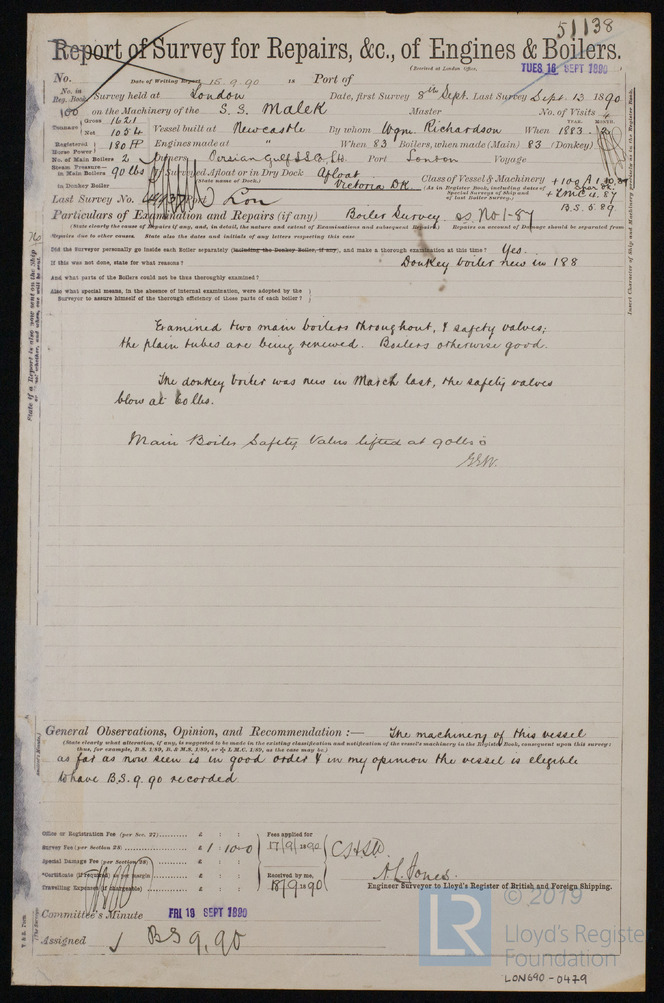 51138
Report of Survey for Repairs, &c., of Engines & Boilers.
(Received at London Office, TUES 16 SEPT 1890
No. Date of Writing Report 15.9.90 18 Port of
No. in Reg. Book Survey held at London Date, first Survey 8th Sept. Last Survey Sept. 13 1890
100 on the Machinery of the S. S. Malek Master No. of Visits 4
Tonnage Gross 1621 Net 1054 Vessel built at Newcastle By whom Wm. Richardson When 1883 . 2
YEAR. MONTH.
Registered Horse Power 180 HP Engines made at " When 83 Boilers, when made (Main) 83 (Donkey)
No. of Main Boilers 2 Owners Persian Gulf S.S. Co. Ld. Port London Voyage
Steam Pressure— in Main Boilers 90 lbs If Surveyed Afloat or in Dry Dock Afloat Class of Vessel & Machinery + 100 A1
in Donkey Boiler (State name of Dock.) Victoria Dk. (As in Register Book, including dates of Special Surveys of Ship and of last Boiler Survey.) + LMC 4.87
Last Survey No. Port Lon B.S. 5.89
Particulars of Examination and Repairs (if any) Boiler Survey. s.s. No 1-87
(State clearly the cause of Repairs if any, and, in detail, the nature and extent of Examinations and subsequent Repairs.) Repairs on account of Damage should be separated from
Repairs due to other causes. State also the dates and initials of any letters respecting this case
Did the Surveyor personally go inside each Boiler separately (including the Donkey Boiler, if any), and make a thorough examination at this time? Yes.
If this was not done, state for what reasons? Donkey boiler new in 188
And what parts of the Boilers could not be thus thoroughly examined?
Also what special means, in the absence of internal examination, were adopted by the
Surveyor to assure himself of the thorough efficiency of those parts of each boiler?
Examined two main boilers throughout, & safety valves;
the plain tubes are being renewed. Boilers otherwise good.
The donkey boiler was new in March last, the safety valves
blow at 60 lbs.
Main Boiler Safety Valves lifted at 90 lbs
State if a Report is also now sent on the Ship
Insert Character of Ship and Machinery precisely as in the Register Book.
General Observations, Opinion, and Recommendation :— The machinery of this vessel
(State clearly what alteration, if any, is suggested to be made in the existing classification and notification of the vessel's machinery in the Register Book, consequent upon this survey:
thus, for example, B.S. 1/89, B. & M.S. 1/89, or + L.M.C. 1/89, as the case may be.)
as far as now seen is in good order & in my opinion the vessel is eligible
to have B.S. 9.90 recorded
Office or Registration Fee (per Sec. 27) £ : : Fees applied for
Survey Fee (per Section 28) £ 1 : 10 - 0 17/9/1890
Special Damage Fee (per Section 28) £ : :
*Certificate (if required) as per margin £ : : Received by me,
Travelling Expenses (if chargeable) £ : : 18/9/1890
A. L. Jones.
Engineer Surveyor to Lloyd's Register of British and Foreign Shipping.
Committee's Minute FRI 19 SEPT 1890
Assigned BS 9.90
© 2019
LR
Lloyd's Register
Foundation
LON690-0479